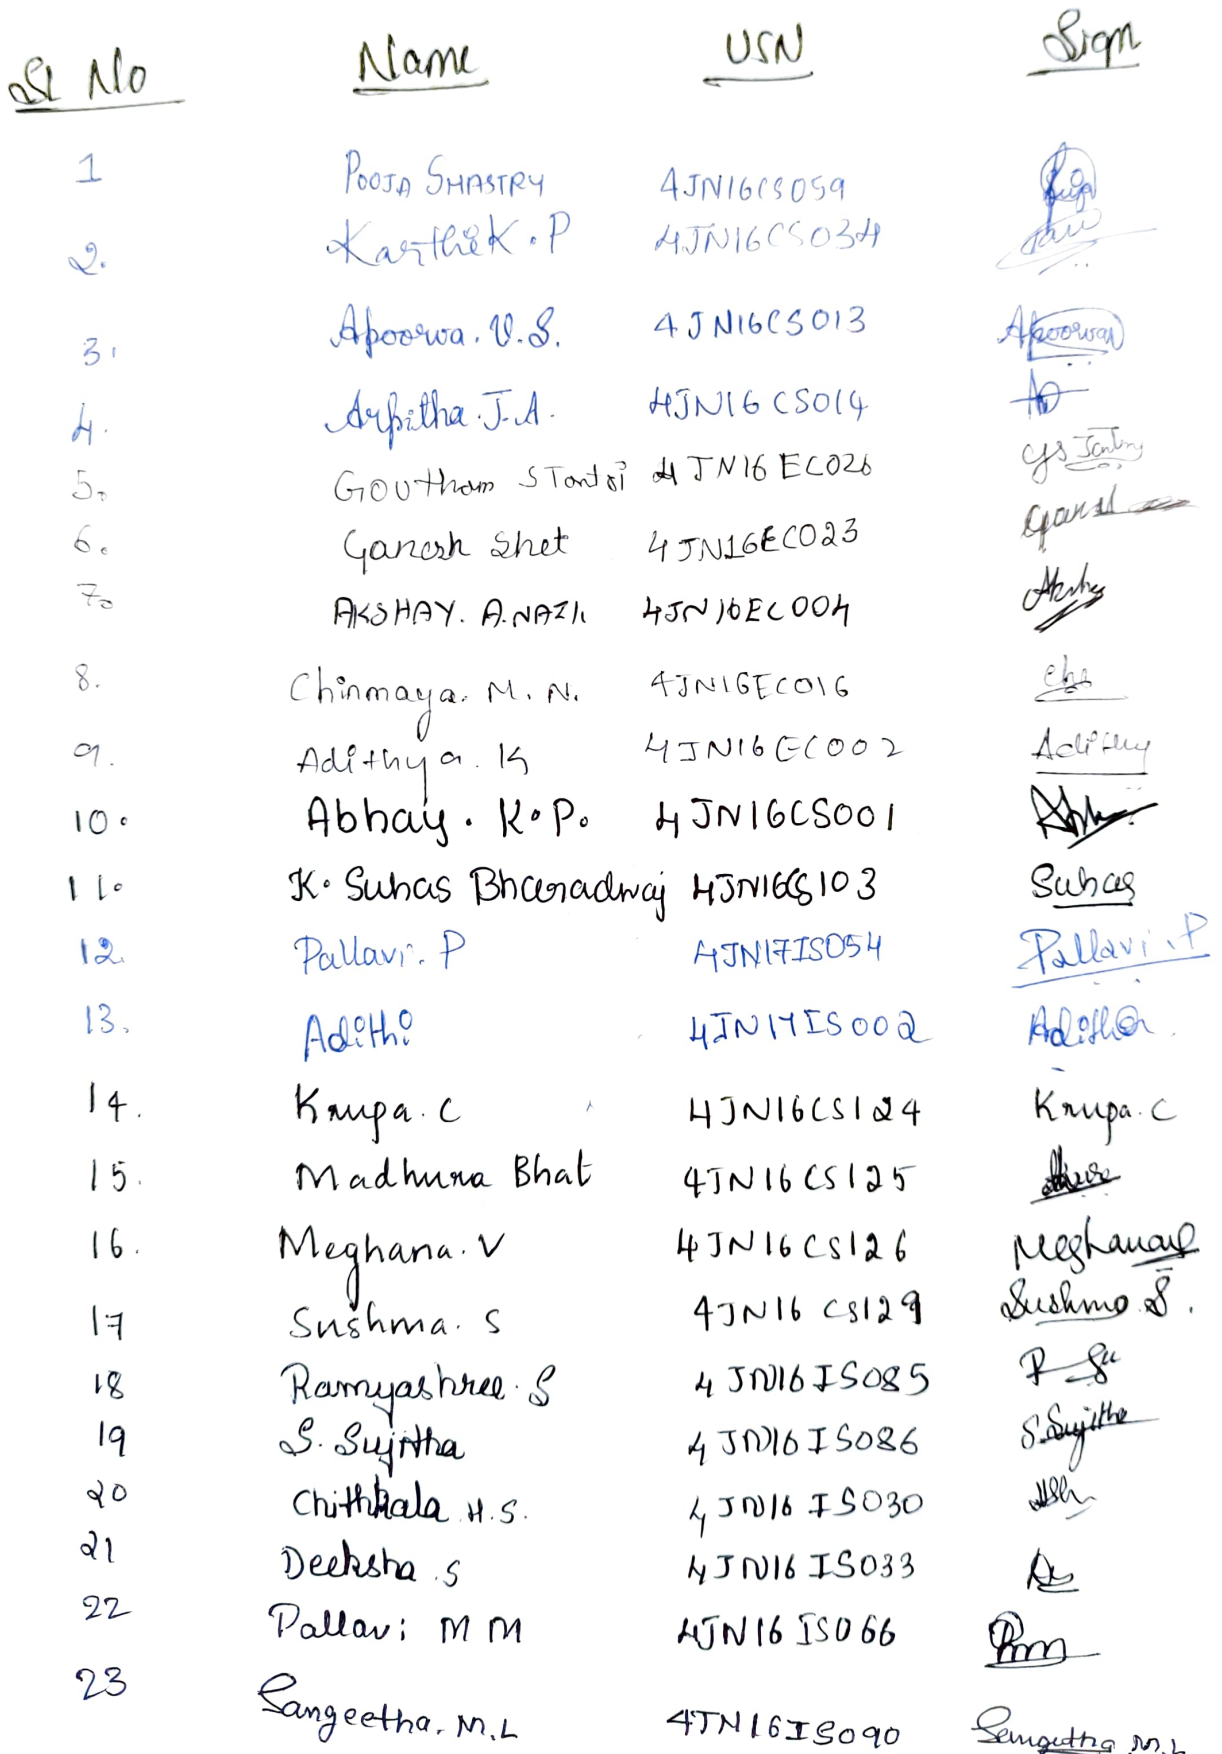 Sl No Name USN Sign
1 POOJA SHASTRY 4JN16CS059
2. Karthik . P 4JN16CS034
3. Apoorva. V.S. 4JN16CS013 Apoorva
4. Arpitha. J.A. 4JN16CS014
5. Goutham S Tantri 4JN16EC026
6. Ganesh Shet 4JN16EC023
7. AKSHAY. A. NAIK 4JN16EC004
8. Chinmaya. M. N. 4JN16EC016
9. Adithya. K 4JN16EC002
10. Abhay. K.P. 4JN16CS001
11. K. Suhas Bharadwaj 4JN16CS103 Suhas
12. Pallavi. P 4JN17IS054 Pallavi. P
13. Adithi 4JN17IS002
14. Krupa. C 4JN16CS124 Krupa. C
15. Madhura Bhat 4JN16CS125
16. Meghana. V 4JN16CS126
17 Sushma. S 4JN16CS129 Sushma. S.
18 Ramyashree. S 4JN16IS085
19 S. Sujitha 4JN16IS086 S. Sujitha
20 Chithkala H.S. 4JN16IS030
21 Deeksha . S 4JN16IS033
22 Pallavi M M 4JN16IS066
23 Sangeetha. M.L 4JN16IS090 Sangeetha M.L